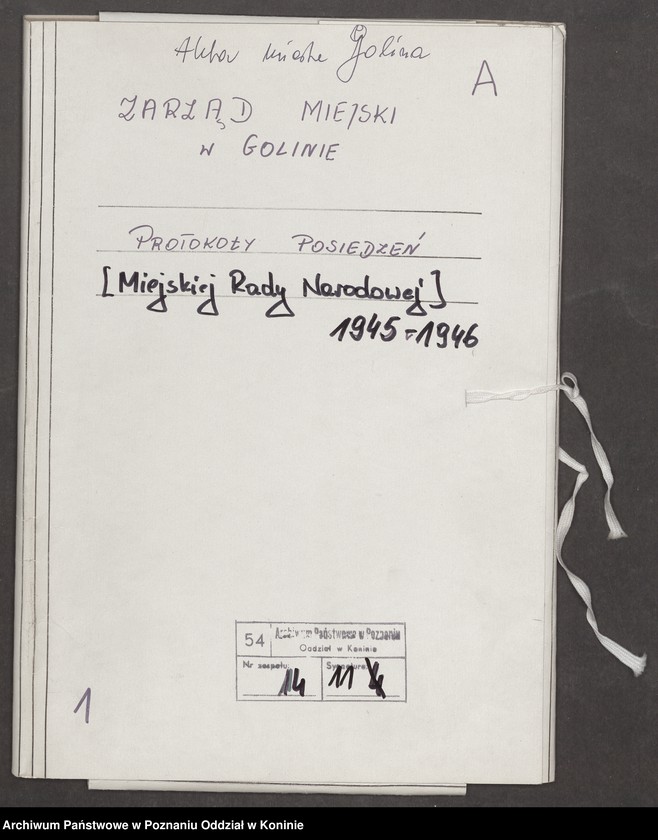 Akta miasta Golina
A
ZARZĄD MIEJSKI
w GOLINIE
PROTOKOŁY POSIEDZEŃ
[Miejskiej Rady Narodowej]
1945-1946
54
Archiwum Państwowe w Poznaniu
Oddział w Koninie
Nr zespołu:
Sygnatura:
14
11
1
Archiwum Państwowe w Poznaniu Oddział w Koninie